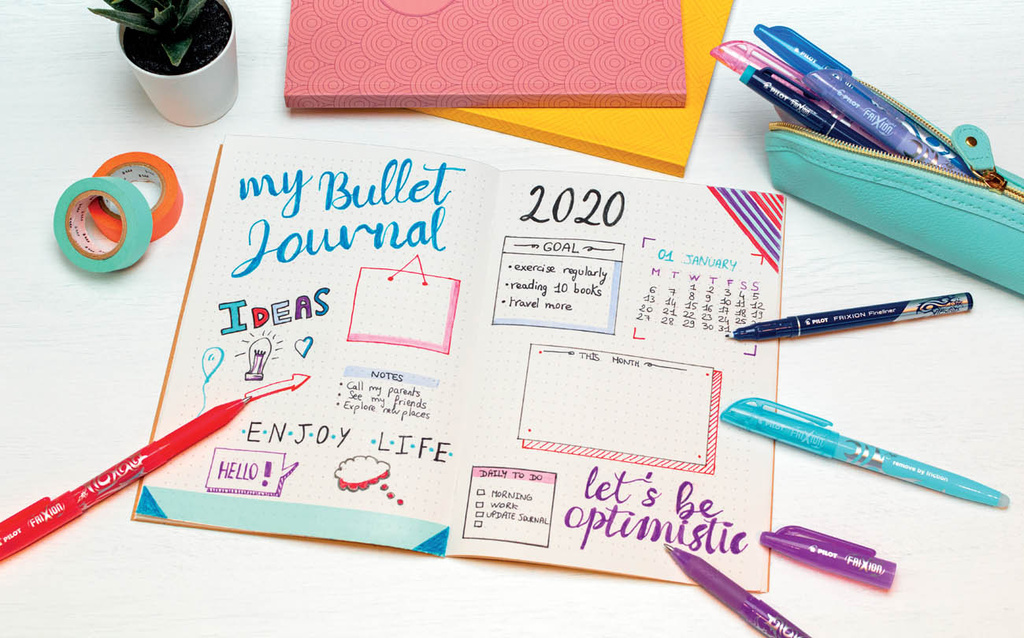 my Bullet
Journal
IDEAS
NOTES
• Call my parents
• See my friends
• Explore new places
•E•N•J•O•Y •L•I•F•E•
HELLO!
2020
GOAL
• exercise regularly
• reading 10 books
• travel more
01 JANUARY
M T W T F S S
1 2 3 4 5
6 7 8 9 10 11 12
13 14 15 16 17 18 19
20 21 22 23 24 25 26
27 28 29 30 31
THIS MONTH
DAILY TO DO
MORNING
WORK
UPDATE JOURNAL
let's be
optimistic
PILOT FRIXION
PILOT FRIXION Fineliner
FRIXION
remove by friction
PILOT FRIXION
PILOT FRIXION